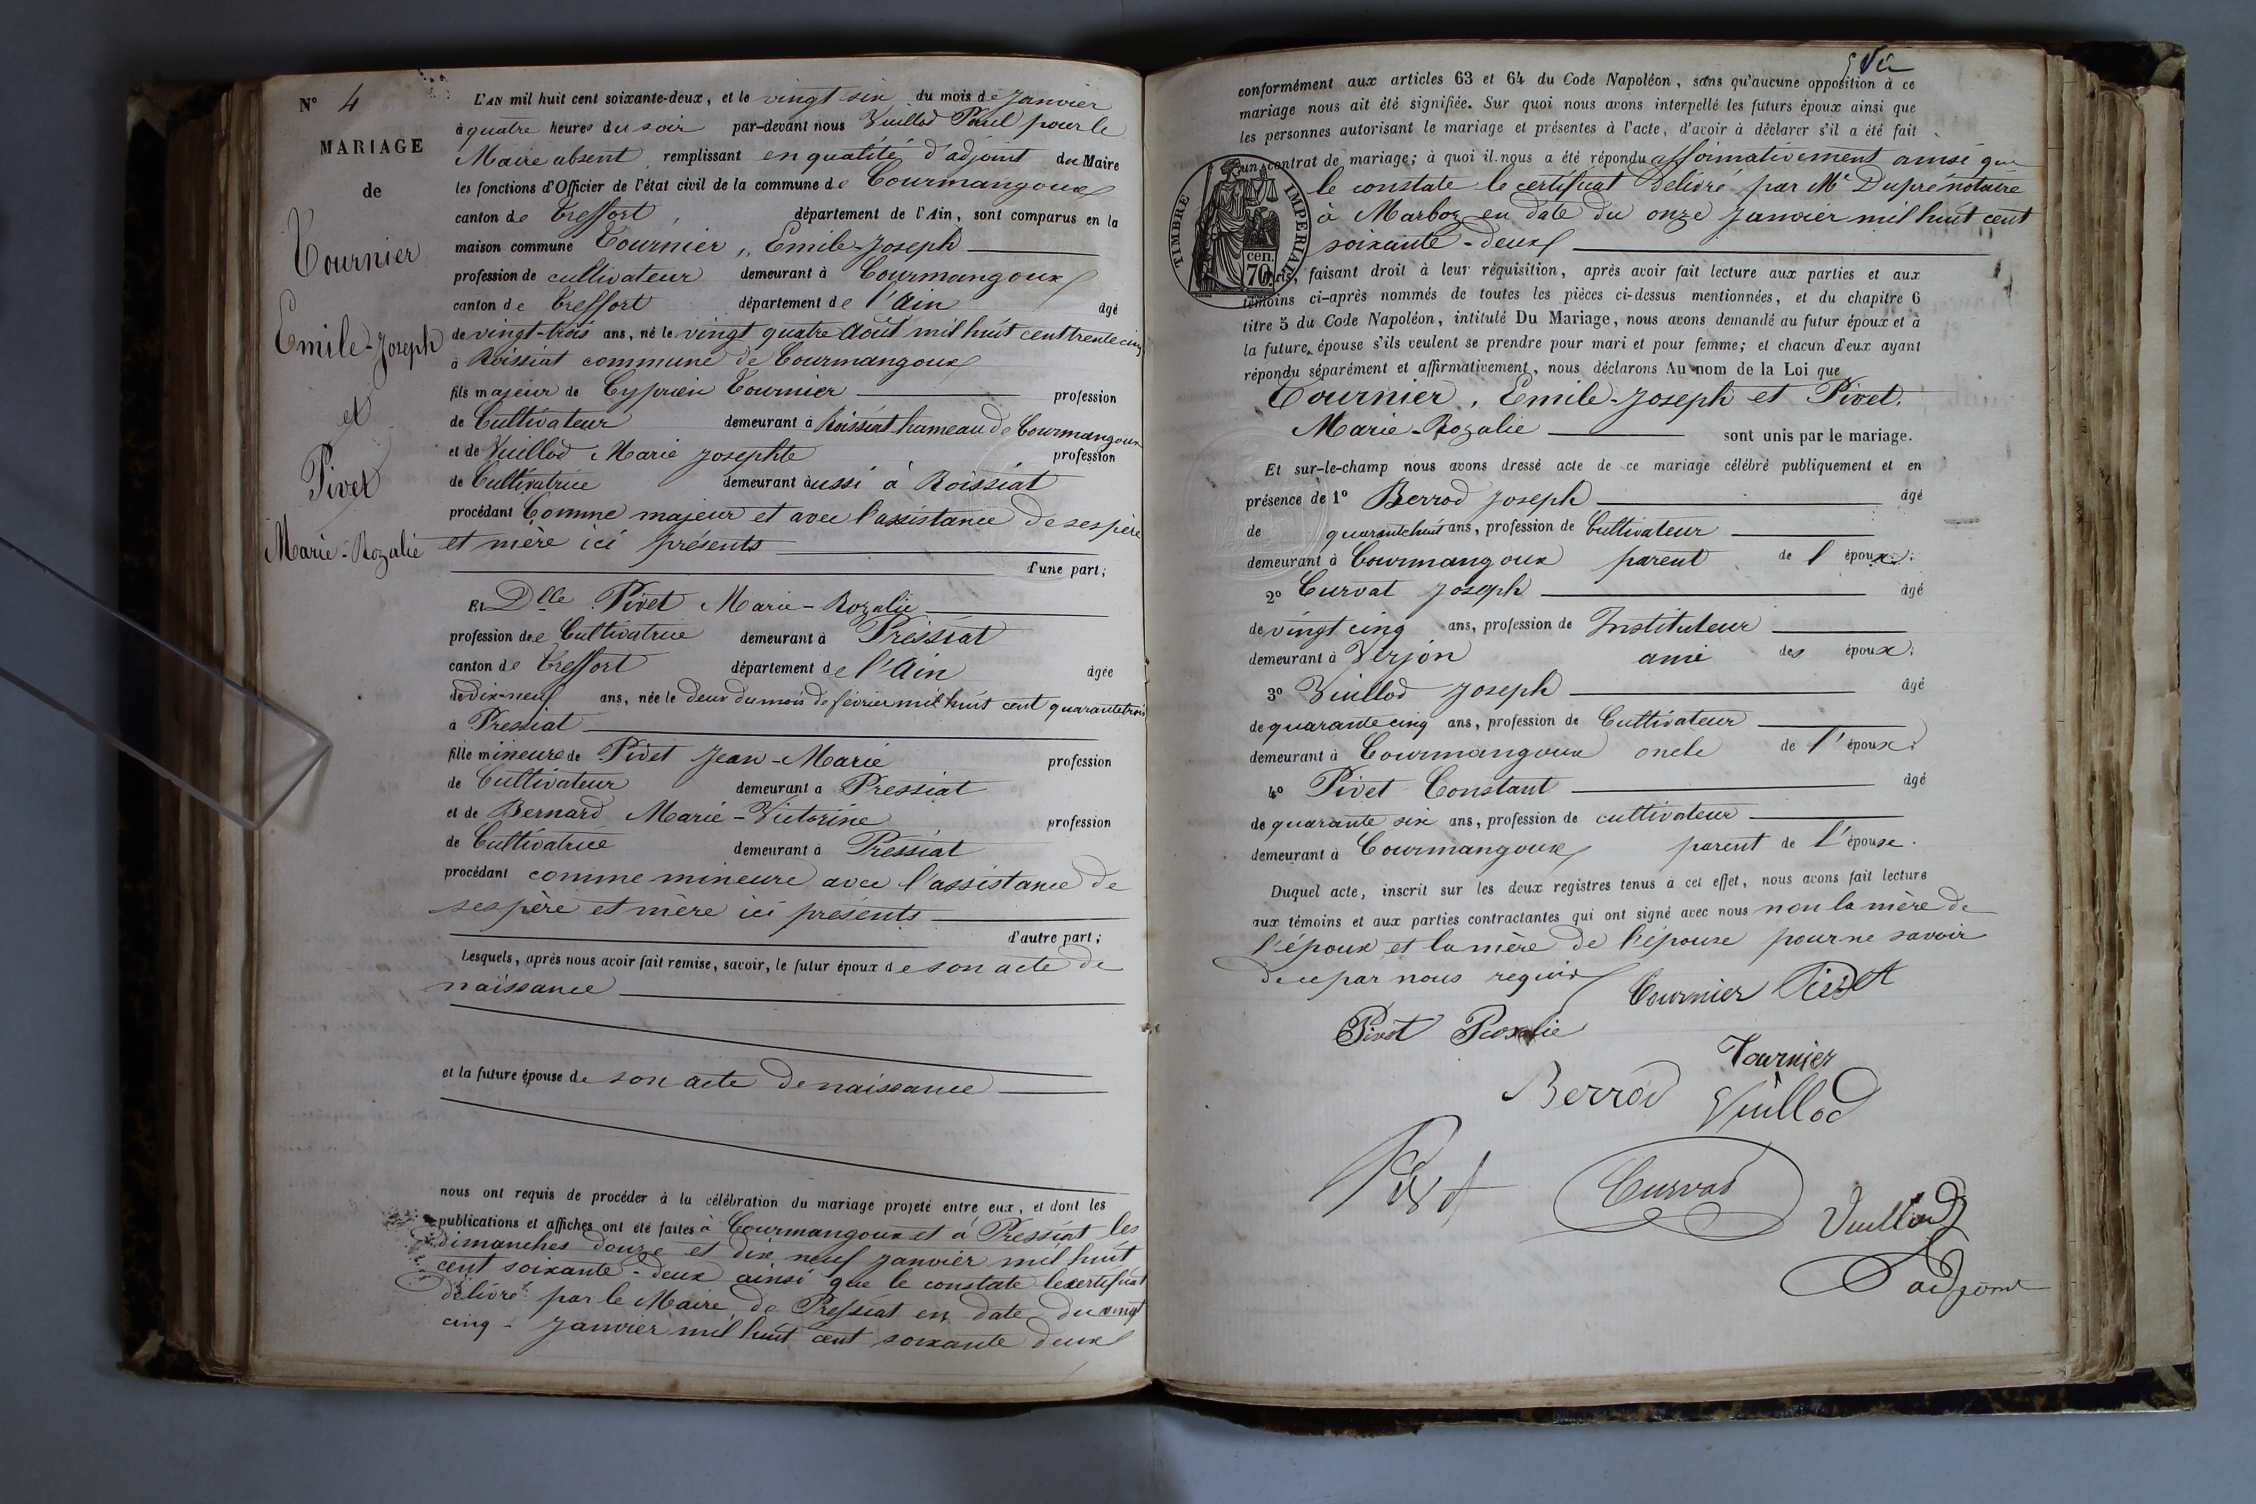 N° 4
MARIAGE
de
Tournier
Emile-Joseph
et
Pivet
Marie-Rozalie
L'AN mil huit cent soixante-deux, et le vingt six du mois de Janvier
à quatre heures du soir par-devant nous Vuillod Paul pour le
Maire absent remplissant en qualité d'adjoint du Maire
les fonctions d'Officier de l'état civil de la commune de Courmangoux
canton de Treffort, département de l'Ain, sont comparus en la
maison commune Tournier, Emile-Joseph
profession de cultivateur demeurant à Courmangoux
canton de Treffort département de l'Ain âgé
de vingt-trois ans, né le vingt quatre Août mil huit cent trente cinq
à Roissiat commune de Courmangoux
fils majeur de Cyprien Tournier profession
de Cultivateur demeurant à Roissiat hameau de Courmangoux
et de Vuillod Marie Josephte profession
de Cultivatrice demeurant aussi à Roissiat
procédant Comme majeur et avec l'assistance de ses père
et mère ici présents
d'une part;
Et Dlle Pivet Marie-Rozalie
profession de Cultivatrice demeurant à Pressiat
canton de Treffort département de l'Ain âgée
de dix-neuf ans, née le deux du mois de février mil huit cent quarante trois
à Pressiat
fille mineure de Pivet Jean-Marie profession
de Cultivateur demeurant à Pressiat
et de Bernard Marie-Victorine profession
de Cultivatrice demeurant à Pressiat
procédant comme mineure avec l'assistance de
ses père et mère ici présents
d'autre part;
Lesquels, après nous avoir fait remise, savoir, le futur époux de son acte de
naissance
et la future épouse de son acte de naissance
nous ont requis de procéder à la célébration du mariage projeté entre eux, et dont les
publications et affiches ont été faites à Courmangoux et à Pressiat les
dimanches douze et dix neuf janvier mil huit
cent soixante-deux ainsi que le constate le certificat
délivré par le Maire de Pressiat en date du vingt
cinq-Janvier mil huit cent soixante deux
conformément aux articles 63 et 64 du Code Napoléon, sans qu'aucune opposition à ce
mariage nous ait été signifiée. Sur quoi nous avons interpellé les futurs époux ainsi que
les personnes autorisant le mariage et présentes à l'acte, d'avoir à déclarer s'il a été fait
un contrat de mariage; à quoi il nous a été répondu affirmativement ainsi que
le constate le certificat délivré par Me Dupré notaire
à Marboz en date du onze Janvier mil huit cent
soixante-deux
TIMBRE IMPERIAL
cen.
70
faisant droit à leur réquisition, après avoir fait lecture aux parties et aux
témoins ci-après nommés de toutes les pièces ci-dessus mentionnées, et du chapitre 6
titre 5 du Code Napoléon, intitulé Du Mariage, nous avons demandé au futur époux et à
la future épouse s'ils veulent se prendre pour mari et pour femme; et chacun d'eux ayant
répondu séparément et affirmativement, nous déclarons Au nom de la Loi que
Tournier, Emile-Joseph et Pivet.
Marie-Rozalie sont unis par le mariage.
Et sur-le-champ nous avons dressé acte de ce mariage célébré publiquement et en
présence de 1° Berrod Joseph âgé
de quarante huit ans, profession de Cultivateur
demeurant à Courmangoux parent de l'époux;
2° Curvat Joseph âgé
de vingt cinq ans, profession de Instituteur
demeurant à Verjon ami des époux;
3° Vuillod Joseph âgé
de quarante cinq ans, profession de Cultivateur
demeurant à Courmangoux oncle de l'époux;
4° Pivet Constant âgé
de quarante six ans, profession de cultivateur
demeurant à Courmangoux parent de l'épouse.
Duquel acte, inscrit sur les deux registres tenus à cet effet, nous avons fait lecture
aux témoins et aux parties contractantes qui ont signé avec nous non la mère de
l'époux et la mère de l'épouse pour ne savoir
de ce par nous requis
Tournier Pivet
Pivet Rosalie
Tournier
Berrod Vuillod
Pivet Curvat
Vuillod
adjoint